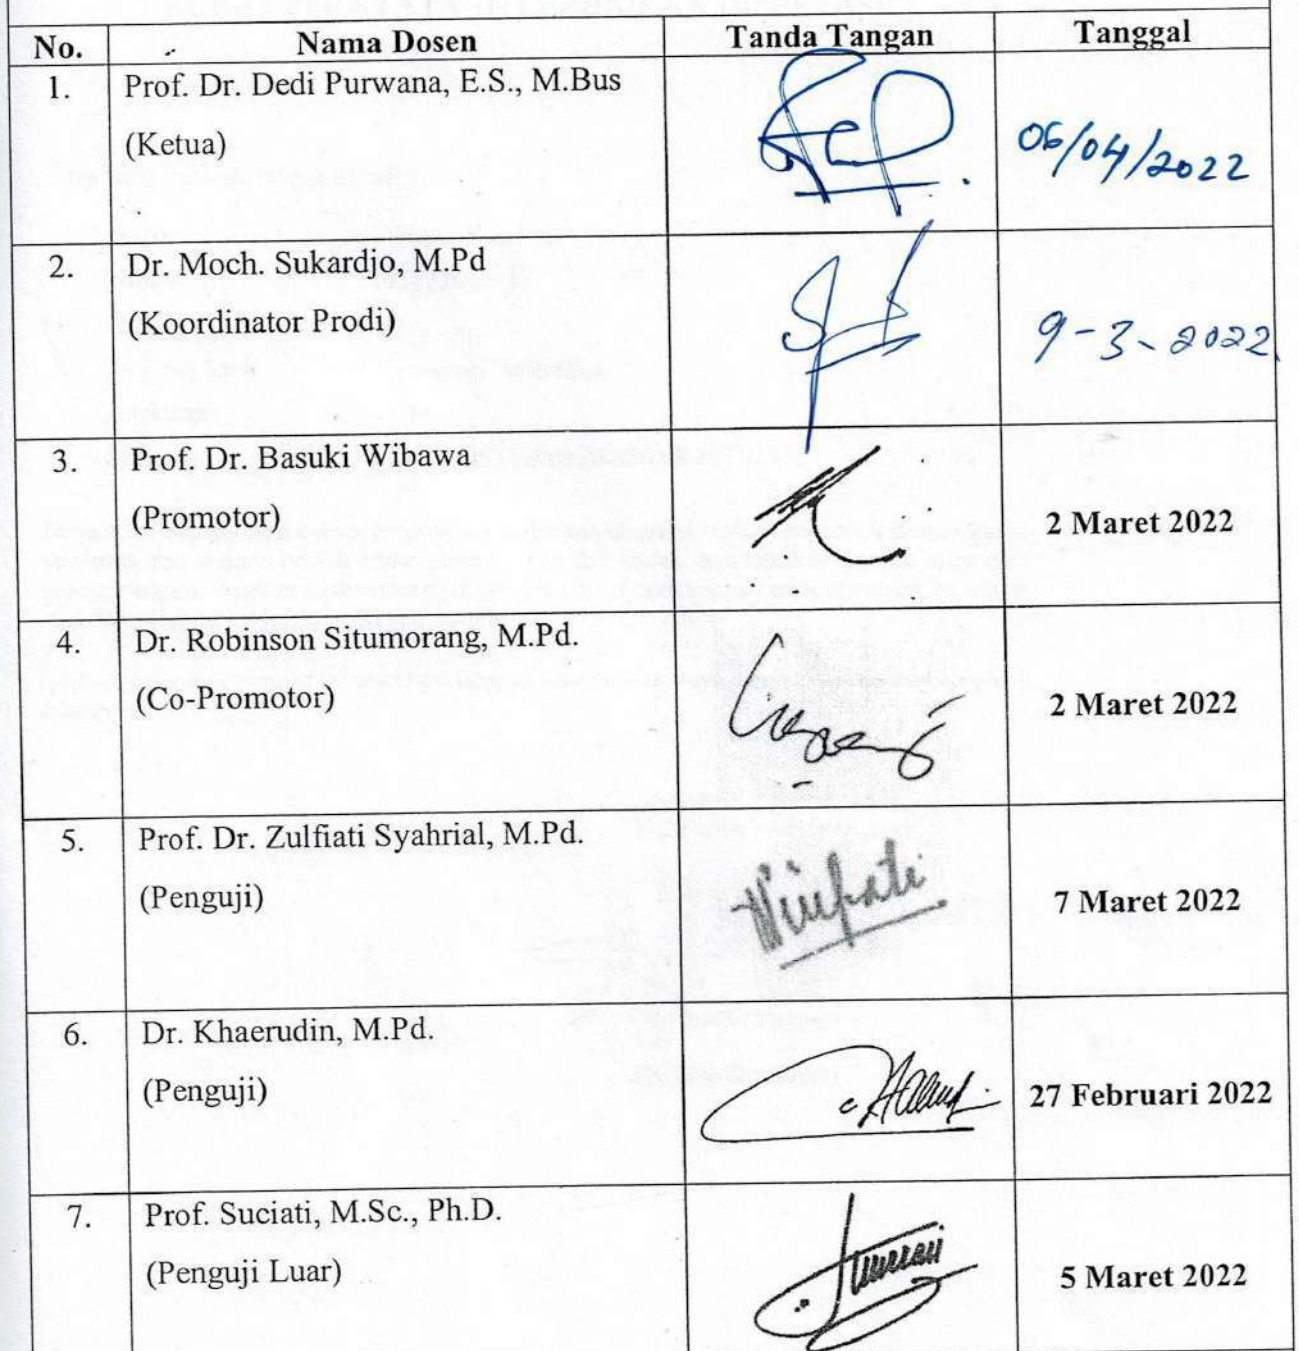 No. Nama Dosen Tanda Tangan Tanggal
1. Prof. Dr. Dedi Purwana, E.S., M.Bus
(Ketua) 06/04/2022
2. Dr. Moch. Sukardjo, M.Pd
(Koordinator Prodi) 9-3-2022
3. Prof. Dr. Basuki Wibawa
(Promotor) 2 Maret 2022
4. Dr. Robinson Situmorang, M.Pd.
(Co-Promotor) 2 Maret 2022
5. Prof. Dr. Zulfiati Syahrial, M.Pd.
(Penguji) 7 Maret 2022
6. Dr. Khaerudin, M.Pd.
(Penguji) 27 Februari 2022
7. Prof. Suciati, M.Sc., Ph.D.
(Penguji Luar) 5 Maret 2022